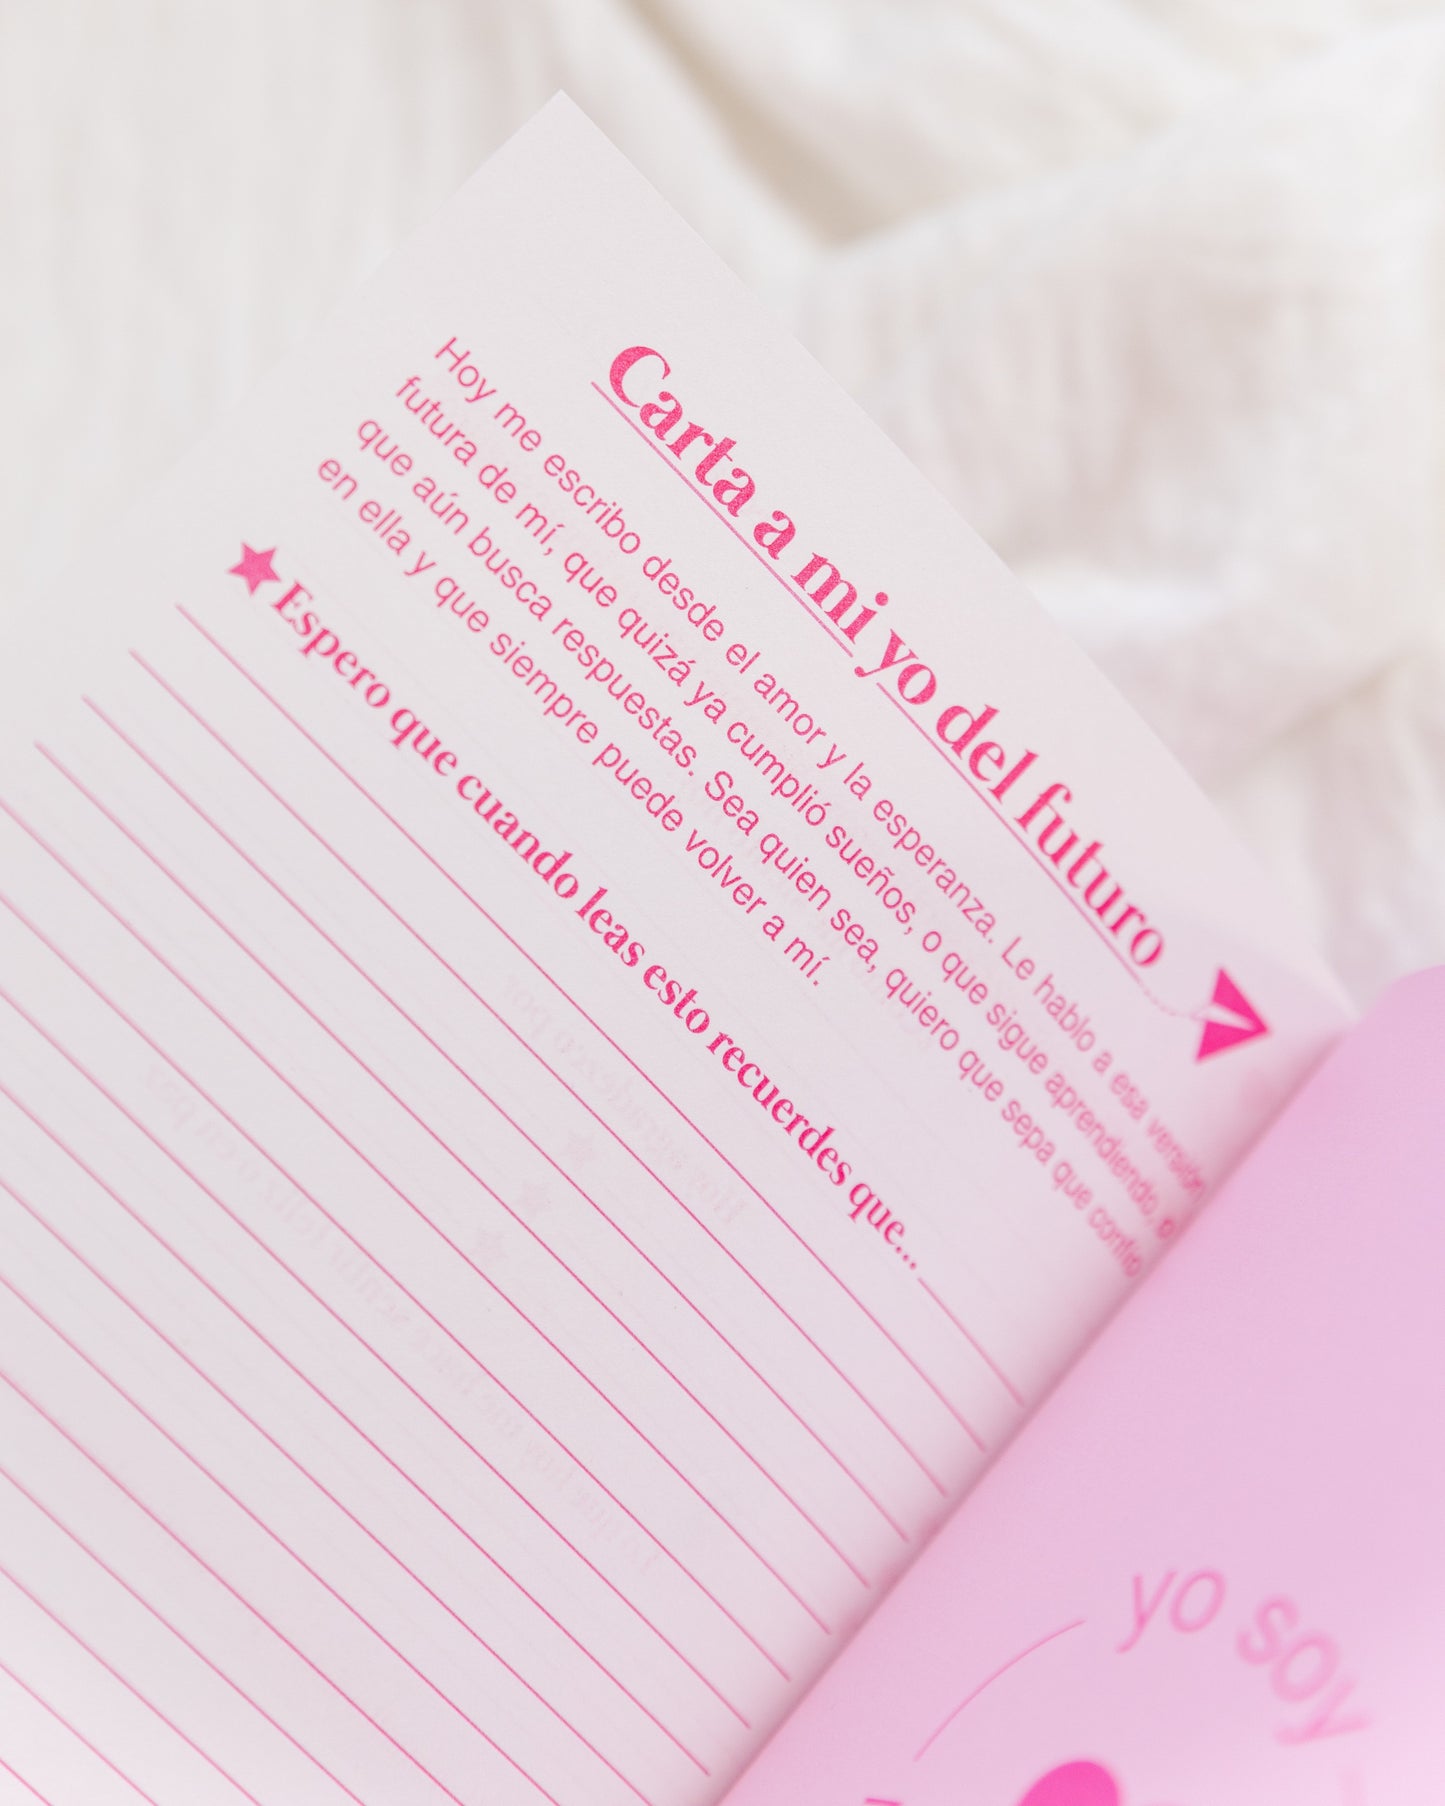 Carta a mi yo del futuro
Hoy me escribo desde el amor y la esperanza. Le hablo a esa versión
futura de mí, que quizá ya cumplió sueños, o que sigue aprendiendo, o
que aún busca respuestas. Sea quien sea, quiero que sepa que confío
en ella y que siempre puede volver a mí.
Espero que cuando leas esto recuerdes que...
yo soy